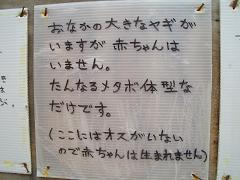 おなかの大きなヤギが
いますが赤ちゃんは
いません。
たんなるメタボ体型な
だけです。
(ここにはオスがいない
ので赤ちゃんは生まれません)